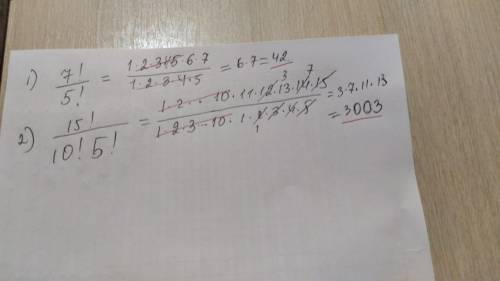 1) 7!/5! = 1·2·3·4·5·6·7/1·2·3·4·5 = 6·7=42
2) 15!/10!5! = 1·2·...·10·11·12·13·14·15/1·2·3·...·10·1·2·3·4·5 = 3·7·11·13
3 7
1
= 3003